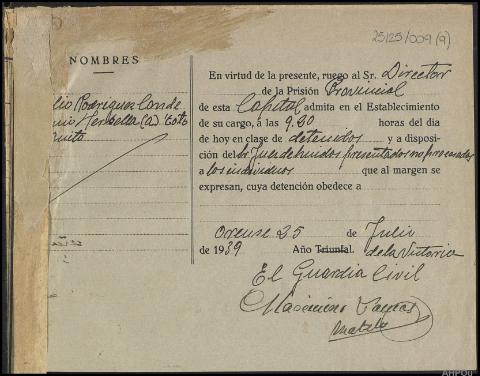 25125/009(9)
NOMBRES
lio Rodriguez Conde
nio Herbella (a) Coto
nito
En virtud de la presente, ruego al Sr. Director
de la Prisión Provincial
de esta Capital admita en el Establecimiento
de su cargo, á las 9.30 horas del día
de hoy en clase de detenidos y a disposi-
ción del Sr. Juez de huidos presentados no procesados
a los individuos que al margen se
expresan, cuya detención obedece a
Orense 25 de Julio
de 1939 Año Triunfal. de la Victoria
El Guardia Civil
AHPOu